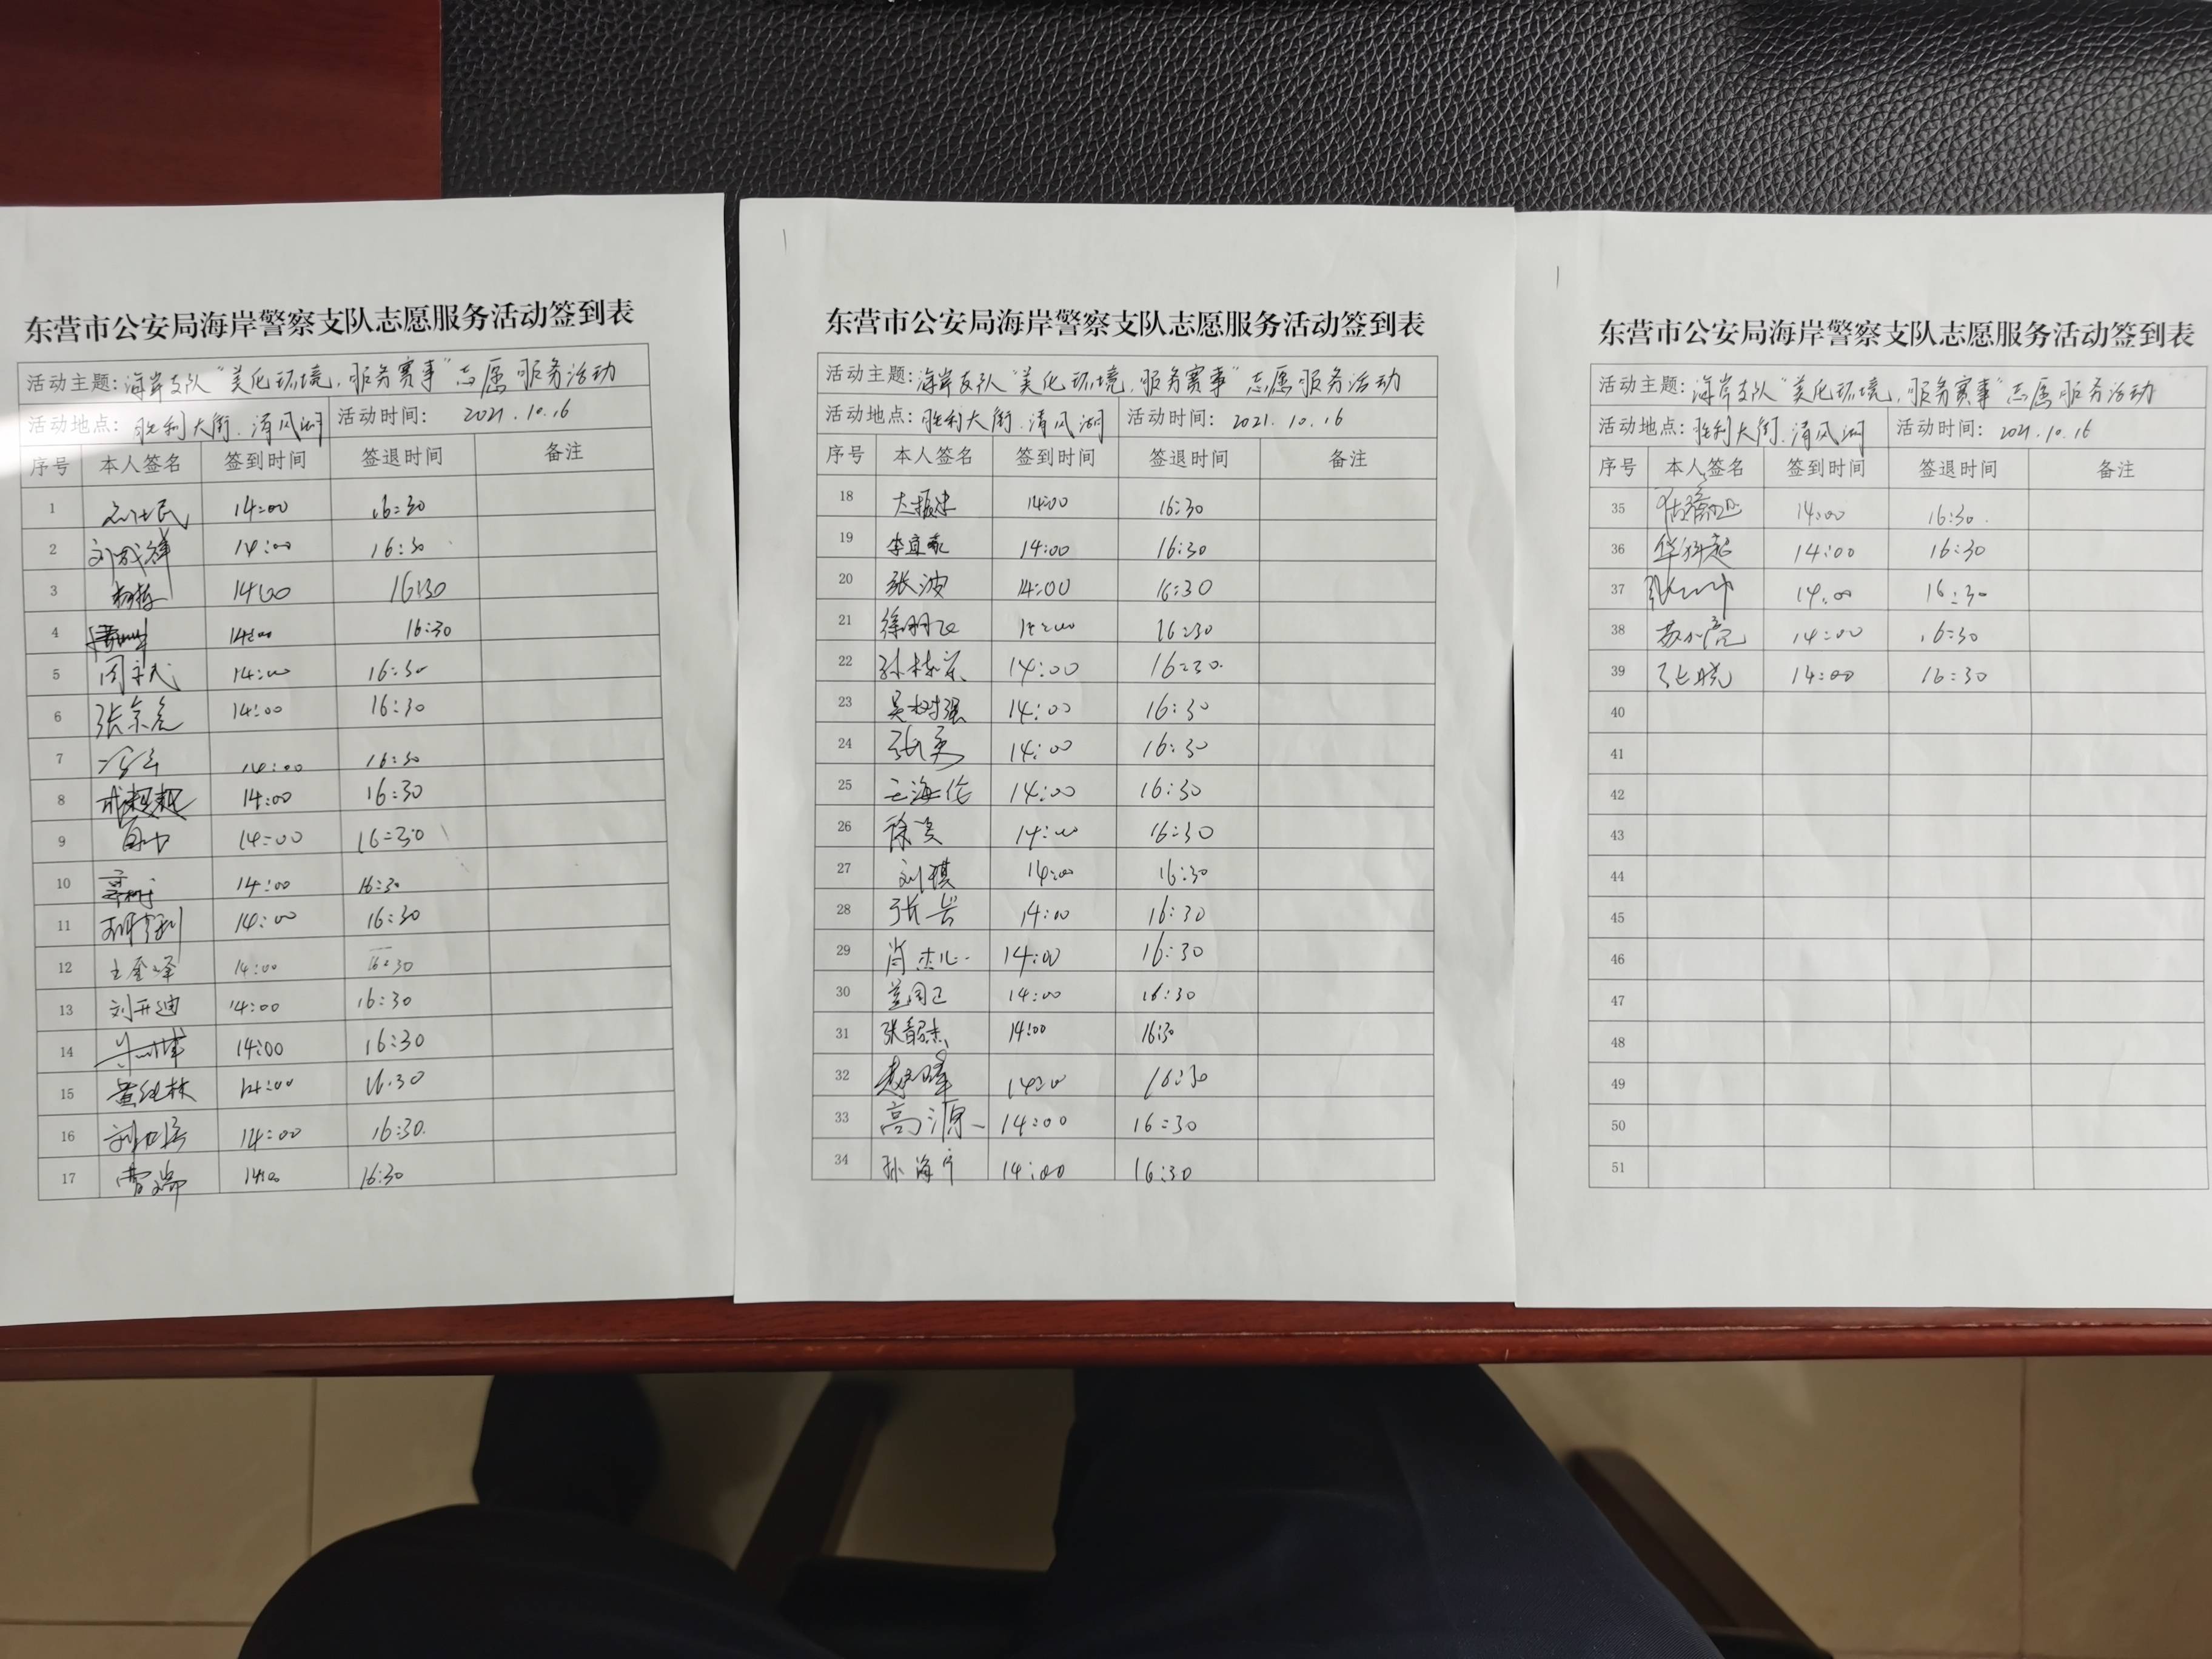 东营市公安局海岸警察支队志愿服务活动签到表
活动主题: 海岸支队“美化环境,服务赛事”志愿服务活动
活动地点: 胜利大街.清风湖 活动时间: 2021.10.16
序号 本人签名 签到时间 签退时间 备注
1 14:00 16:30
2 刘成祥 14:00 16:30
3 14:00 16:30
4 14:00 16:30
5 14:00 16:30
6 张宗亮 14:00 16:30
7 14:00 16:30
8 14:00 16:30
9 14:00 16:30
10 14:00 16:30
11 14:00 16:30
12 王奎峰 14:00 16:30
13 刘开迪 14:00 16:30
14 14:00 16:30
15 14:00 16:30
16 14:00 16:30
17 曹端 14:00 16:30
东营市公安局海岸警察支队志愿服务活动签到表
活动主题: 海岸支队“美化环境,服务赛事”志愿服务活动
活动地点: 胜利大街.清风湖 活动时间: 2021.10.16
序号 本人签名 签到时间 签退时间 备注
18 14:00 16:30
19 14:00 16:30
20 张波 14:00 16:30
21 14:00 16:30
22 14:00 16:30
23 吴树强 14:00 16:30
24 14:00 16:30
25 王海伦 14:00 16:30
26 14:00 16:30
27 刘琪 14:00 16:30
28 14:00 16:30
29 14:00 16:30
30 14:00 16:30
31 张韶杰 14:00 16:30
32 14:00 16:30
33 高源 14:00 16:30
34 14:00 16:30
东营市公安局海岸警察支队志愿服务活动签到表
活动主题: 海岸支队“美化环境,服务赛事”志愿服务活动
活动地点: 胜利大街.清风湖 活动时间: 2021.10.16
序号 本人签名 签到时间 签退时间 备注
35 14:00 16:30
36 14:00 16:30
37 14:00 16:30
38 苏小亮 14:00 16:30
39 张晓 14:00 16:30
40
41
42
43
44
45
46
47
48
49
50
51